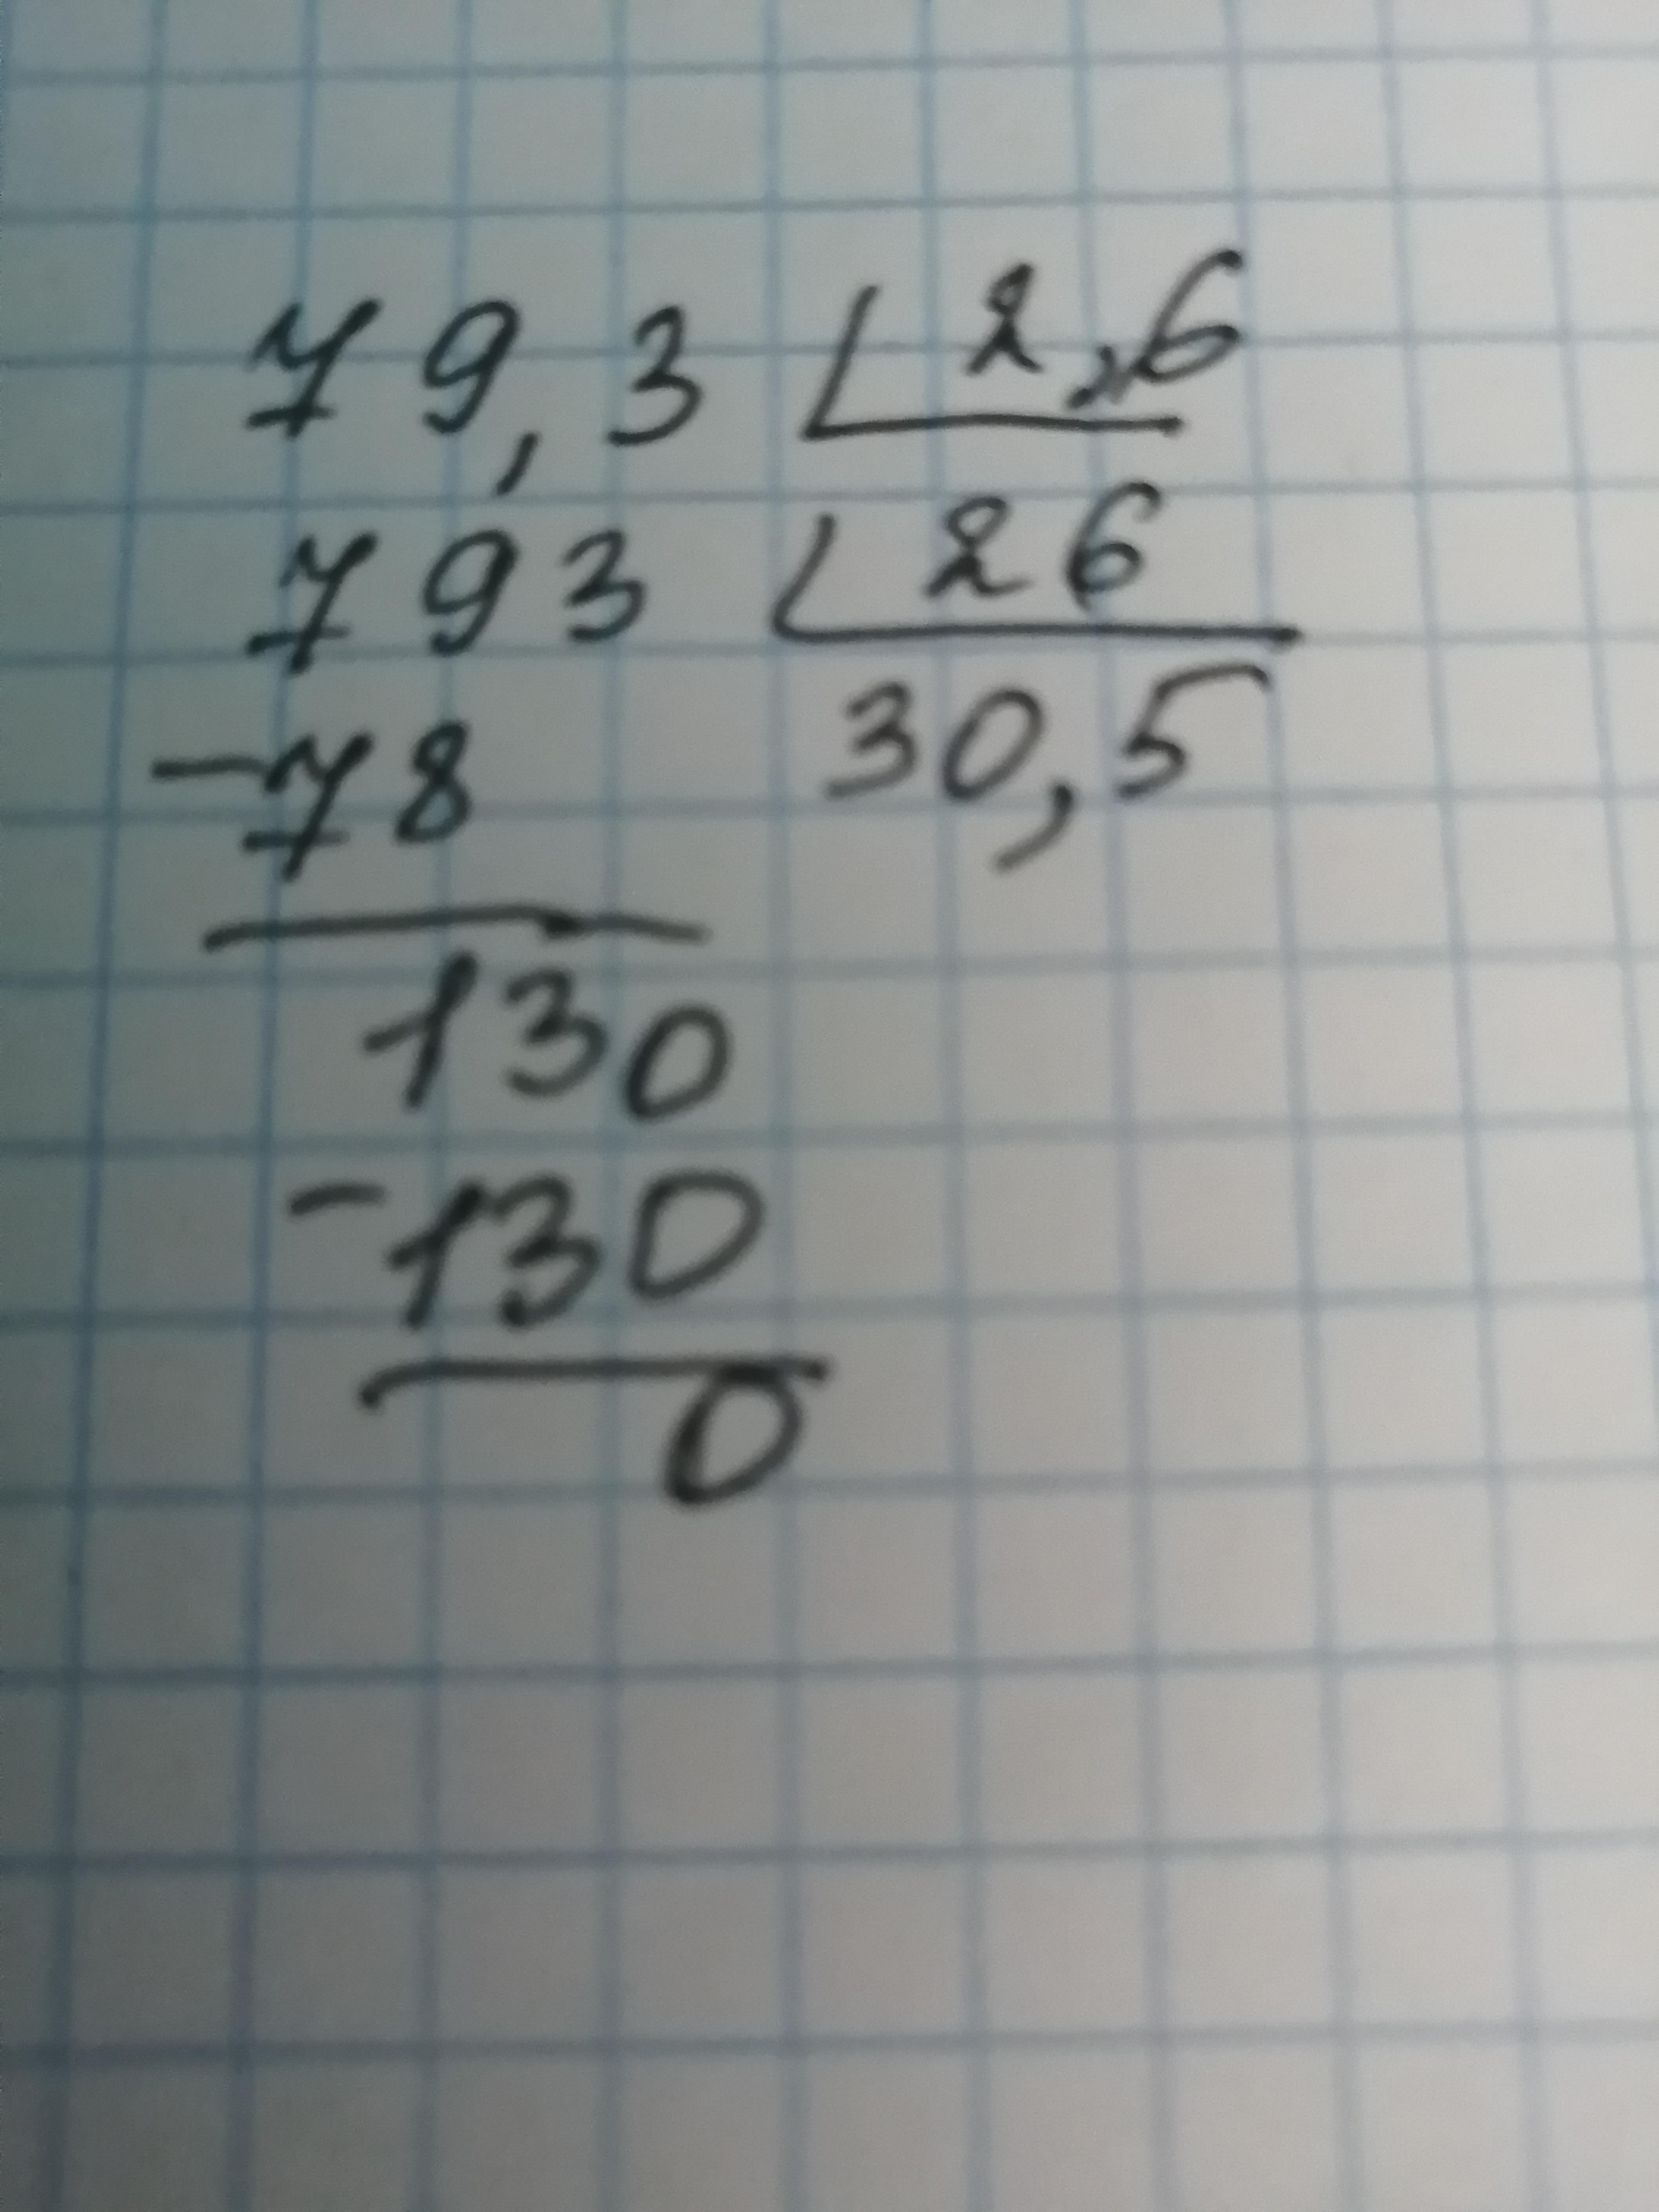 79,3 2,6
793 26
-78 30,5
130
-130
0